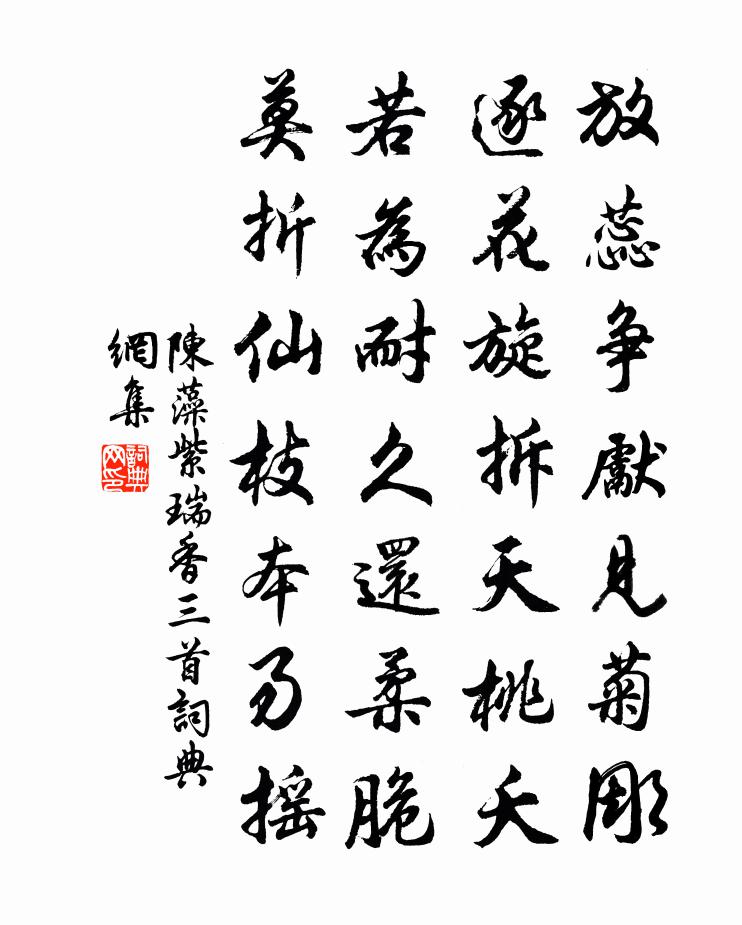 放蕊争獻見菊彫
逐花旋拆天桃夭
若為耐久還柔脆
莫折仙枝本易摇
陳藻紫瑞香三首詞典
網集
詞典
网印